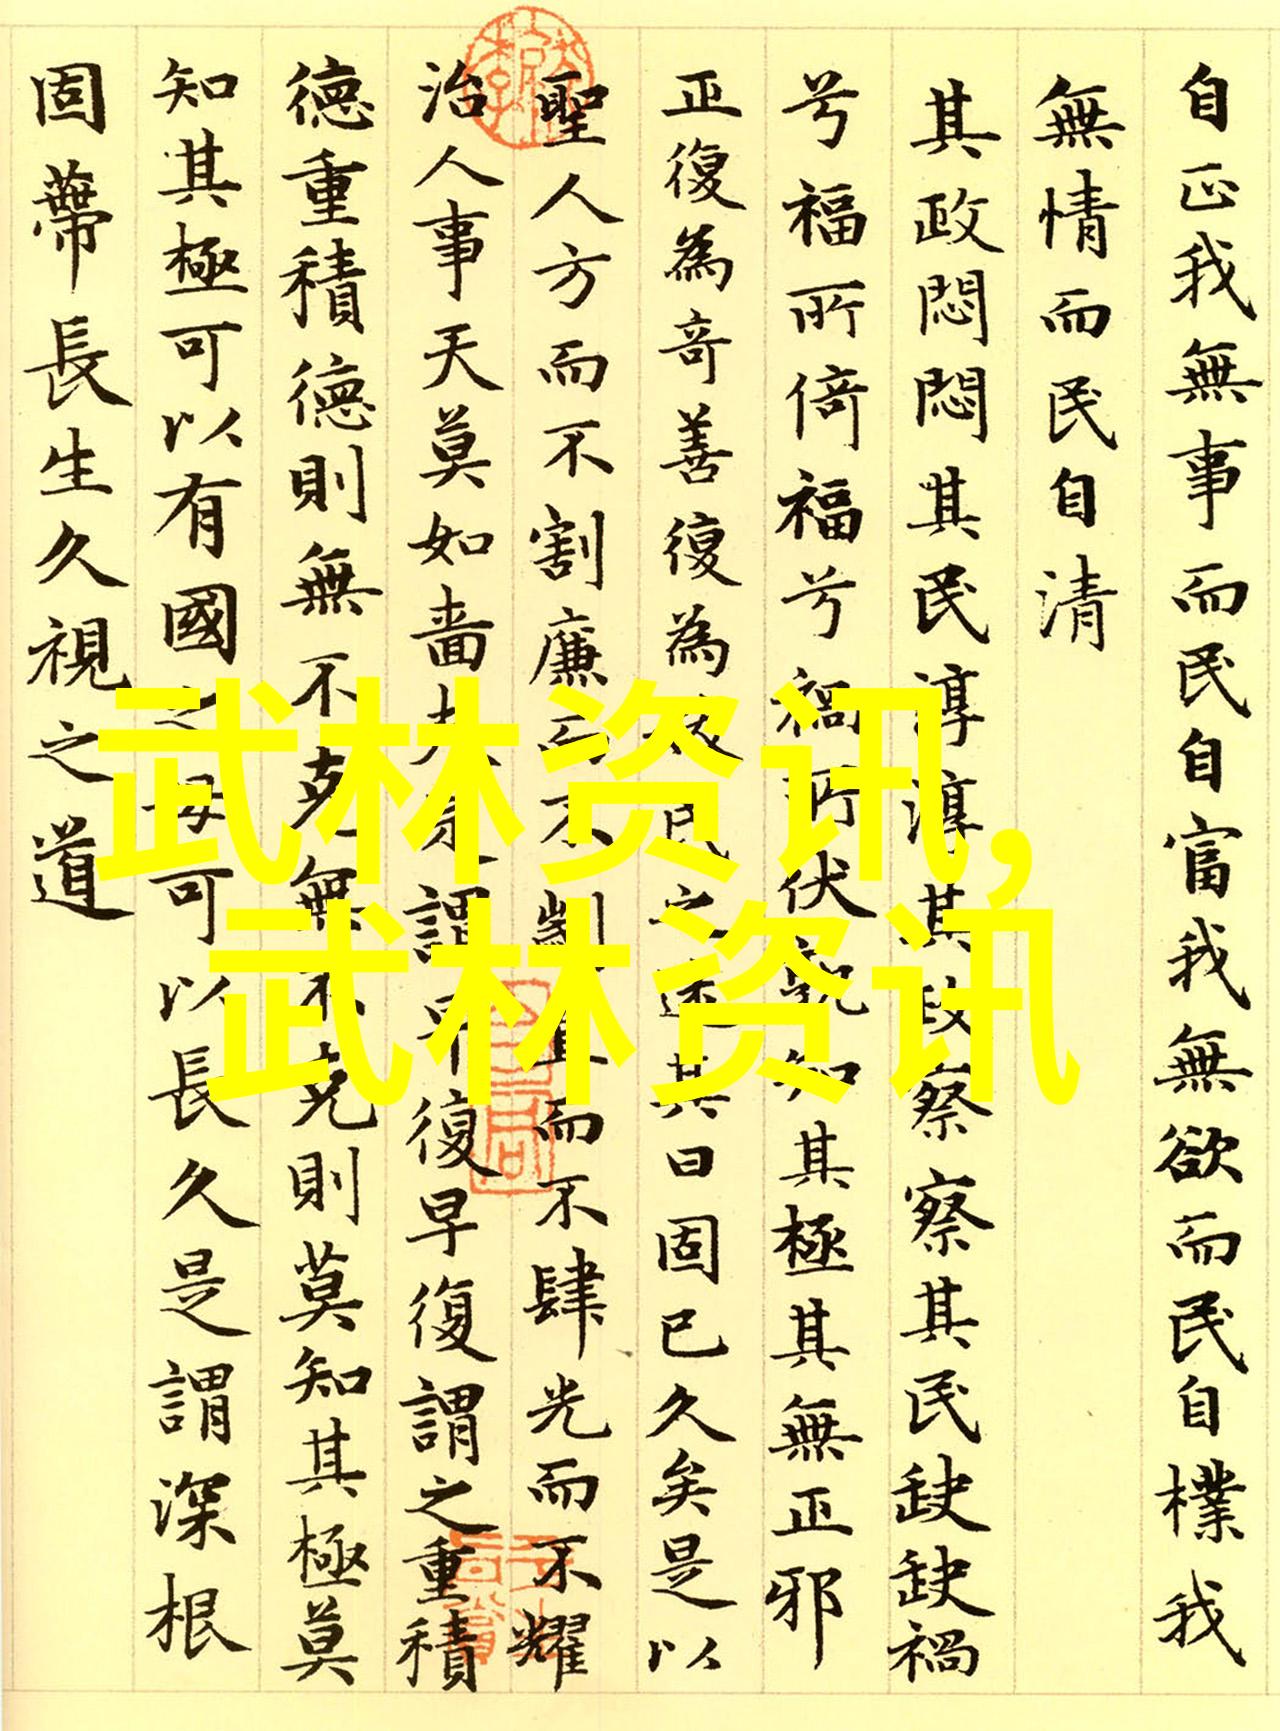 自正我無事而民自富我無欲而民自樸我
無情而民自清
其政悶悶其民淳淳其政察察其民缺缺禍
兮福所倚福兮禍所伏孰知其極其無正邪
正復為奇善復為民之迷其日固已久矣是以
聖人方而不割廉而不劌直而不肆光而不耀
治人事天莫如嗇夫謂早復早復謂之重積
德重積德則無不克無不克則莫知其極莫
知其極可以有國之母可以長久是謂深根
固蔕長生久視之道
武林资讯,
武林资讯